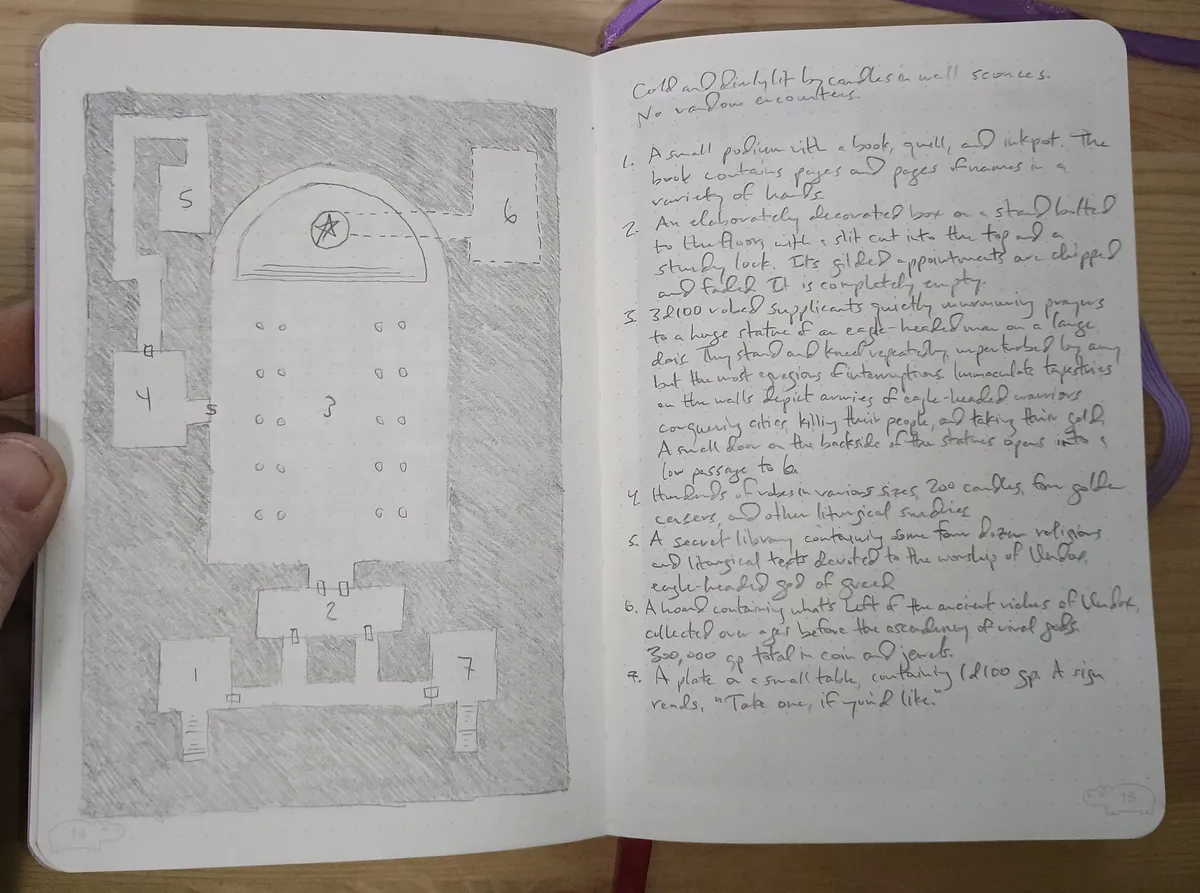 5
6
4
S
3
2
1
7
14
Cold and dimly lit by candles in wall sconces.
No random encounters.
1. A small podium with a book, quill, and inkpot. The
book contains pages and pages of names in a
variety of hands.
2. An elaborately decorated box on a stand bolted
to the floor, with a slit cut into the top and a
sturdy lock. Its gilded appointments are chipped
and faded. It is completely empty.
3. 3d100 robed supplicants quietly murmuring prayers
to a huge statue of an eagle-headed man on a large
dais. They stand and kneel repeatedly, unperturbed by any
but the most egregious of interruptions. Immaculate tapestries
on the walls depict armies of eagle-headed warriors
conquering cities, killing their people, and taking their gold.
A small door on the backside of the statues opens into a
low passage to 6.
4. Hundreds of robes in various sizes, 200 candles, four golden
censers, and other liturgical sundries.
5. A secret library containing some four dozen religious
and liturgical texts devoted to the worship of
eagle-headed god of greed.
6. A hoard containing what's left of the ancient riches of
collected over ages before the ascendency of rival gods.
300,000 gp total in coin and jewels.
7. A plate on a small table, containing 1d100 gp. A sign
reads, "Take one, if you'd like."
15